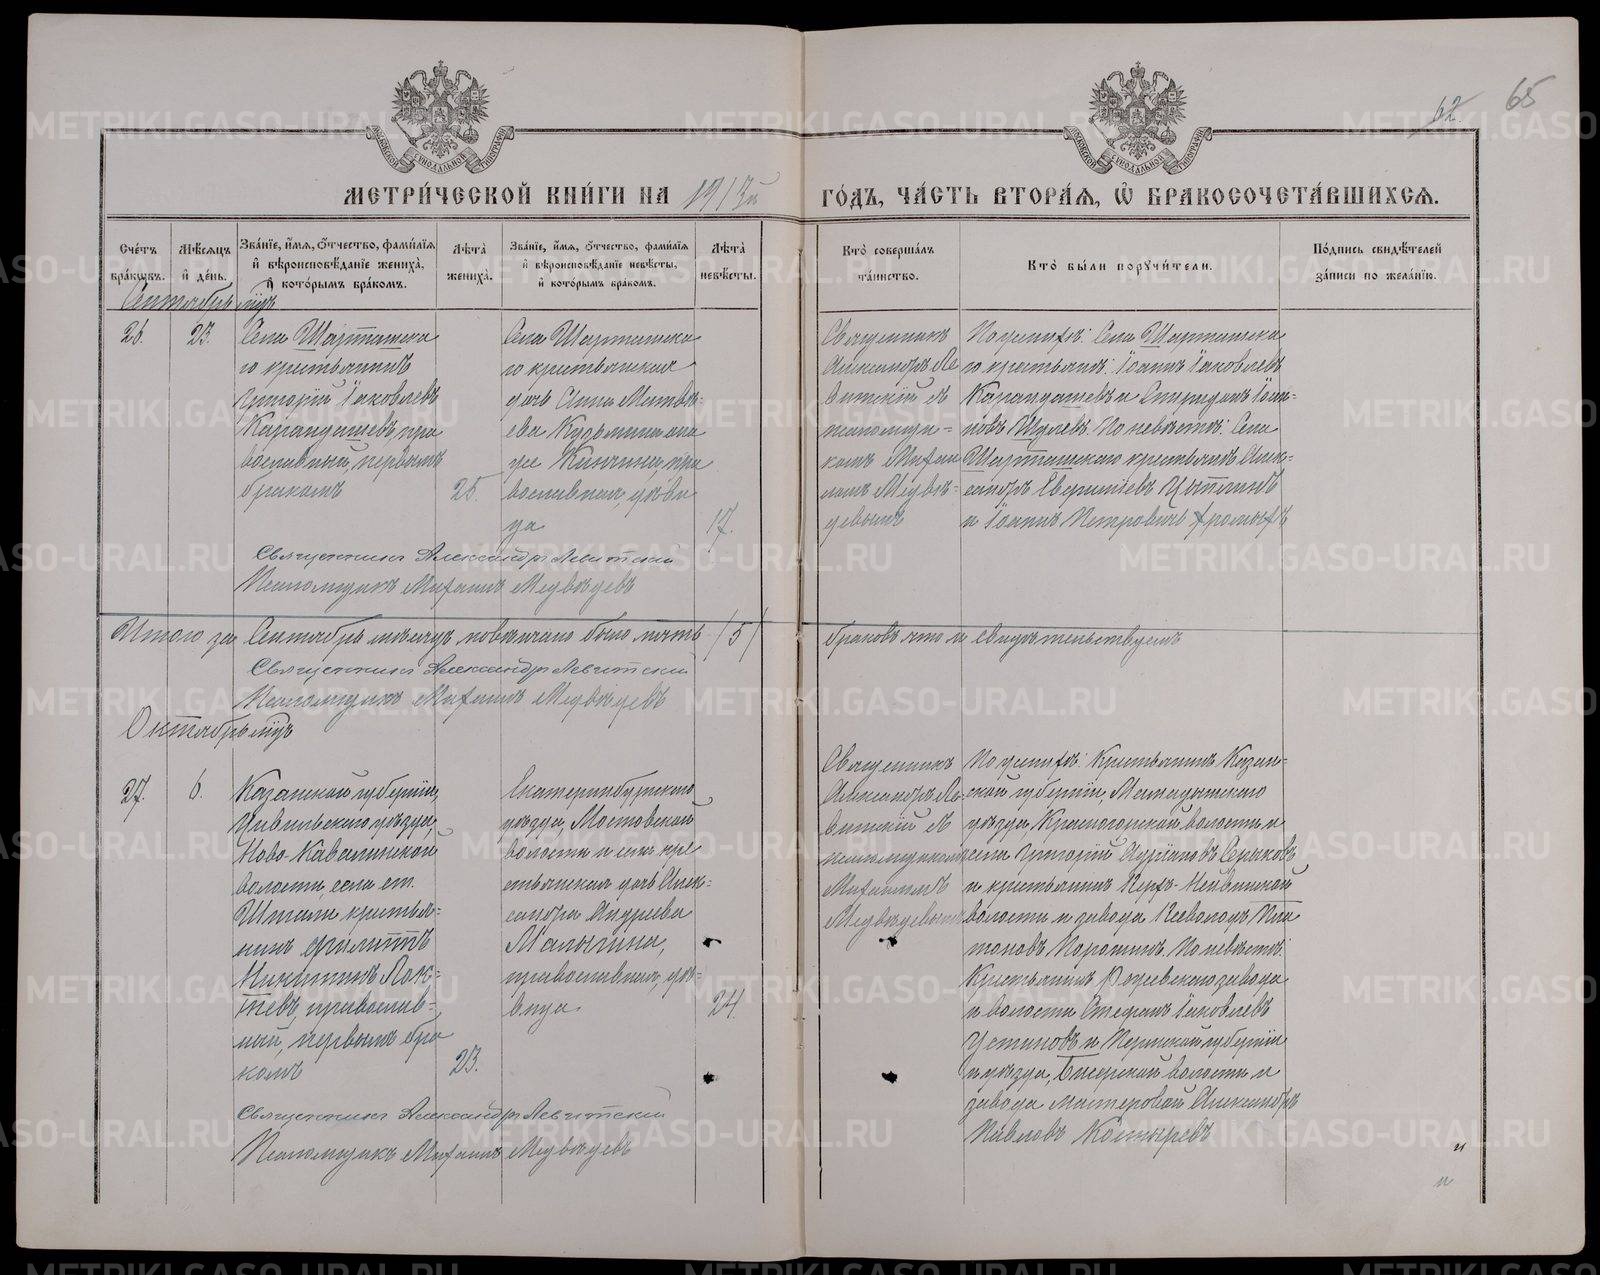 62. 65
МЕТРИ́ЧЕСКОЙ КНИ́ГИ НА 1913й ГО́ДЪ, ЧА́СТЬ ВТОРА́Я, Ѡ҆ БРАКОСОЧЕТА́ВШИХСЯ.
Сче́тъ бра́кѡвъ.
Мѣ́сяцъ и҆ де́нь.
Зва́нїе, и҆́мя, ѻ҆́тчество, фами́лїя и҆ вѣроисповѣ́данїе жениха̀, и҆ кото́рымъ бра́комъ.
Лѣта̀ жениха̀.
Зва́нїе, и҆́мя, ѻ҆́тчество, фами́лїя и҆ вѣроисповѣ́данїе невѣ́сты, и҆ кото́рымъ бра́комъ.
Лѣта̀ невѣ́сты.
Кто̀ соверша́лъ та́инство.
Кто̀ бы́ли поручи́тели.
По́дпись свидѣ́телей за́писи по жела́нїю.
Сентябрь мцъ
26.
23.
Села Шарташска
го крестьянинъ
Григорій Іаковлевъ
Карандашевъ, пра
вославный, первымъ
бракомъ
25.
Села Шарташска
го крестьянская
дочь Анна Матвѣ-
ева Кузьмина она
же Кинчина, пра
вославная, дѣви
ца
17.
Священникъ
Александръ Ле
витскій съ
псаломщи-
комъ Михаи
ломъ Медвѣ-
девымъ
По женихѣ: Села Шарташска
го крестьяне: Іоаннъ Іаковлевъ
Карандашевъ и Спиридонъ Іоан-
новъ Шулевъ. По невѣстѣ: Села
Шарташскаго крестьяне Алек-
сандръ Евграфіевъ Цыплинъ
и Іоаннъ Петровичъ Громыхъ
Священникъ Александръ Левитскій
Псаломщикъ Михаилъ Медвѣдевъ
Итого за Сентябрь мѣсяцъ повѣнчано было пять /5/ браковъ что и свидѣтельствуемъ
Священникъ Александръ Левитскій
Псаломщикъ Михаилъ Медвѣдевъ
Октябрь мцъ
27.
6.
Казанской губерніи,
Цивильскаго уѣзда,
Ново-Кавалинской
волости, села ст.
Штали крестья-
нинъ Филиппъ
Никитинъ Лок-
тевъ, православ-
ный, первымъ бра
комъ
23.
Екатеринбургскаго
уѣзда, Мостовской
волости и села кре
стьянская дочь Алек-
сандра Андреева
Малыгина,
православная, дѣ-
вица
24
Священникъ
Александръ Ле-
витскій съ
псаломщикомъ
Михаиломъ
Медвѣдевымъ
По женихѣ: Крестьянинъ Казан-
ской губерніи, Мамадышскаго
уѣзда Красногорской волости и
села Григорій Андріановъ Серяковъ
и крестьянинъ Верхъ-Нейвинской
волости и завода Всеволодъ Пла
тоновъ Поротинъ. По невѣстѣ:
Крестьянинъ Режевского завода
и волости Стефанъ Іаковлевъ
Устиновъ и Пермской губерніи
и уѣзда, Бисерской волости и
завода мастеровой Александръ
Павловъ Костыревъ
Священникъ Александръ Левитскій
Псаломщикъ Михаилъ Медвѣдевъ
METRIKI.GASO-URAL.RU